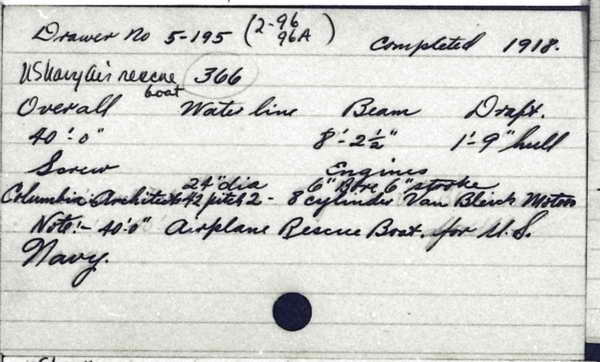 Drawer No 5-195 (2-96 96A) Completed 1918.
US Navy Air rescue boat 366
Overall Water line Beam Draft.
40'-0" 8'-2½" 1'-9" hull
Screw Engines
24" dia 6" Bore 6" stroke
Columbia Architects 42 pitch 2 - 8 cylinder Van Blerck Motors
Note:- 40'0" Airplane Rescue Boat. for U.S.
Navy.